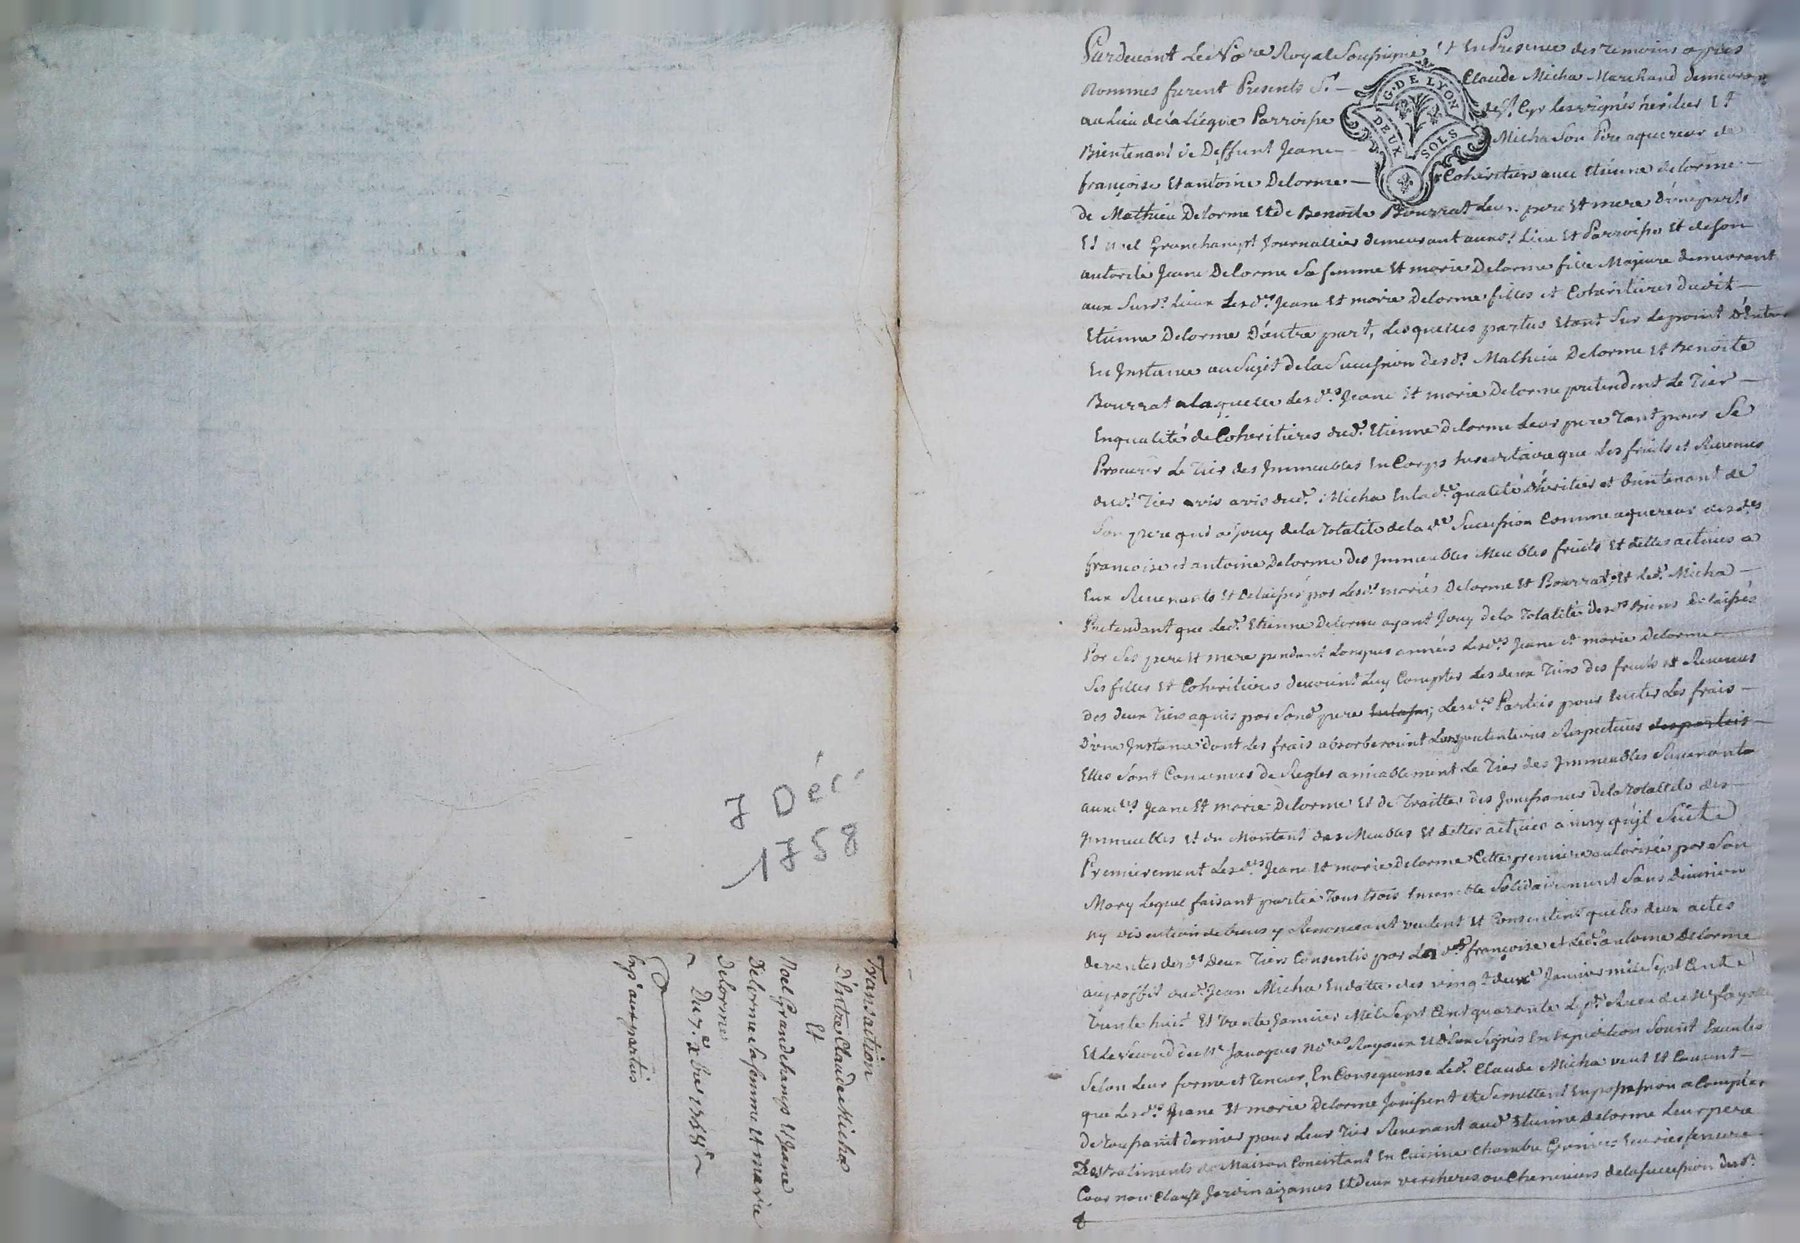 7 Déc
1758
Transaction
D'Entre Claude Micha
Et
Noel Grandchamp Et Jeane
Delorme sa femme et marie
Delorme
Du 7.e xbre 1758
Exp.é aux parties
Pardevant Le No.re Royal Soussigné Et En Presence des temoins apres
nommés furent Presents S.r Claude Micha Marchand demeurant
au Lieu de la Liegue Parroisse de S.t Cyr les vignes heritier Et
Bientenant de Deffunt Jean Micha Son Pere aquereur de
françoise Et antoine Delorme Coheritiers avec Etienne delorme
de Mathieu Delorme Et de Benoite Bourrat Leur pere Et mere D'une part
Et noel Granchampt Journallier demeurant aud.t Lieu Et Parroisse Et de son
autorité Jeane Delorme Sa femme Et marie Delorme fille Majeure demeurant
aux Susd.s Lieux Lesd.es Jeane Et marie Delorme filles et Coheritieres dudit
Etienne Delorme D'autre part, Lesquelles parties Etant Sur Le point D'Entrer
En Instance au Sujet de la Succession desd.s Mathieu Delorme Et Benoite
Bourrat a laquelle lesd.es Jeane Et marie Delorme pretendent Le Tier
En qualité de Coheritieres dud.t Etienne Delorme Leur pere Tant pour Se
Procurer Le Tier des Immeubles En Corps hereditaire que Les fruits et Revenus
dud.t Tier avis avis dud.t Micha En lad.e qualité d'heritier et bientenant de
Son pere qui a jouy de la Totalité de la d.e Succession Comme aquereur desd.es
francoise et antoine Delorme des Immeubles Meubles fruits Et dettes actives a
Eux Revenants Et Delaissé par Lesd.s mariés Delorme Et Bourrat, Et Led.t Micha
Pretendant que Led.t Etienne Delorme ayant Jouy de la Totalité desd.s Biens delaissés
Par Ses pere Et mere pendant Longues années Lesd.es Jeane et marie Delorme
Ses filles Et Coheritieres devoient Luy Compter Les deux Tiers des fruits et Revenus
des deux Tiers aquis par Sond.t pere, Lesd.es Parties pour Eviter Les frais
D'une Instance dont Les frais absorberoient Leurs pretentions Respectives des parties
Elles Sont Convenues de Regler amiablement Le Tier des Immeubles Revenants
auxd.es Jeane Et marie Delorme Et de Traitter des Jouissances de la Totallité des
Immeubles Et du Montant des Meubles Et dettes actives ainsy qu'il Suit
Premierement Lesd.es Jeane Et marie Delorme Cette premiere autorisée par Son
Mary Lequel faisant partie Tous trois Ensemble Solidairement Sans division
ny discution de biens y Renonceant veulent Et Consentent que les deux actes
de ventes desd.s Deux Tiers Consentis par La d.e françoise et Led.t antoine Delorme
au proffit dud.t Jean Micha En datte des vingt deux Janvier mille Sept Cent
Trente huit Et Trente Janvier Mil Sept Cent quarante
Et Le Second Royaux
Selon Leur forme et Teneur, En Consequense Led.t Claude Micha veut Et Consent
que Lesd.es Jeane Et marie Delorme Jouissent et Se mettent En possession a Compter
de Toussaint dernier pour Leur Tier Revenant aud.t Etienne Delorme Leur pere
Des Maison Consistant En Cuisine Chambre Grenier
Cour Jardin aizances Et Deux vercheres ou Cheneviers de la Succession dud.t